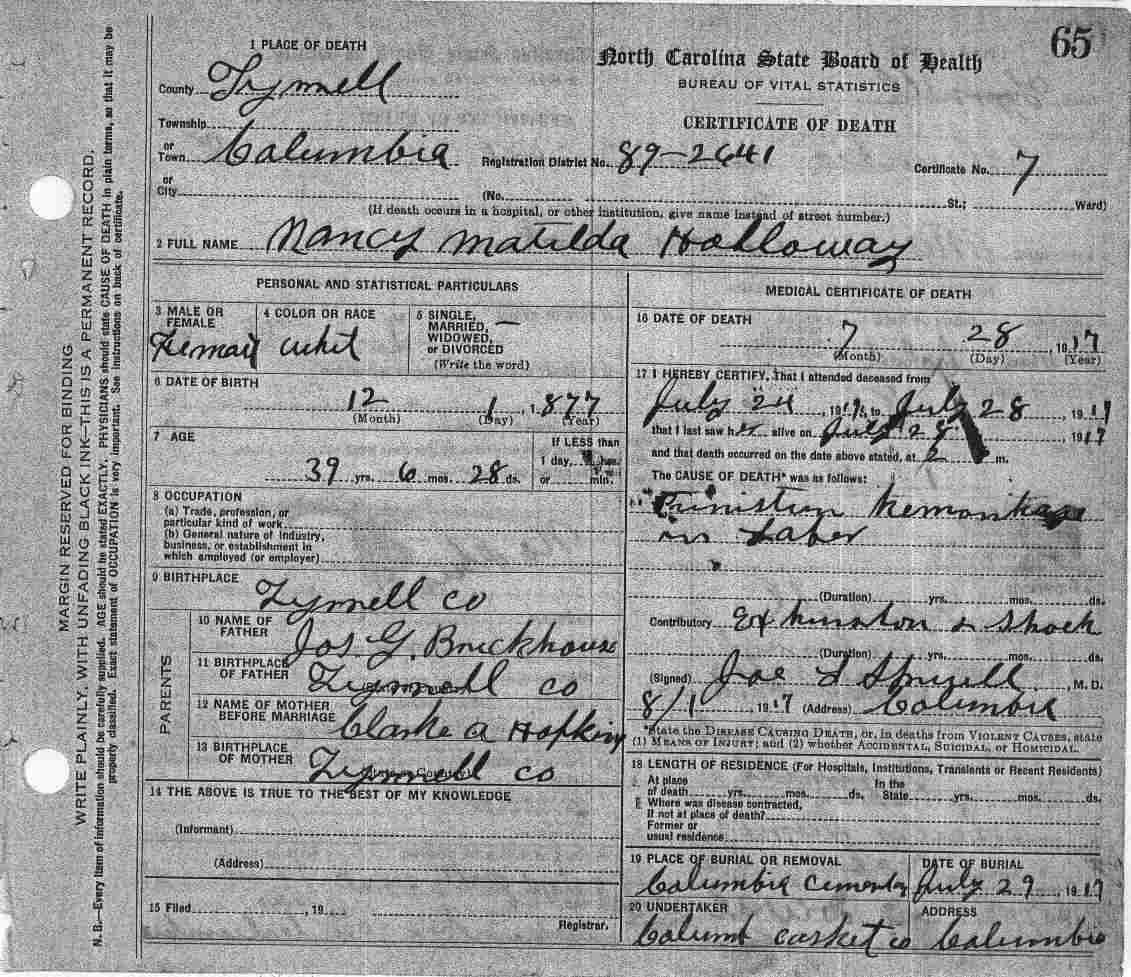 65
1 PLACE OF DEATH
North Carolina State Board of Health
BUREAU OF VITAL STATISTICS
CERTIFICATE OF DEATH
County Tyrrell
Township
or
Town Columbia Registration District No. 89-2641 Certificate No. 7
or
City (No. St.; Ward)
(If death occurs in a hospital, or other institution, give name instead of street number.)
2 FULL NAME Nancy Matilda Holloway
PERSONAL AND STATISTICAL PARTICULARS
3 MALE OR FEMALE
4 COLOR OR RACE
5 SINGLE, MARRIED, WIDOWED, or DIVORCED (Write the word) —
Femail whit
6 DATE OF BIRTH
12 1, 1877
(Month) (Day) (Year)
7 AGE
If LESS than
1 day, hrs.
39 yrs. 6 mos. 28 ds. or min.
8 OCCUPATION
(a) Trade, profession, or
particular kind of work
(b) General nature of industry,
business, or establishment in
which employed (or employer)
9 BIRTHPLACE
Tyrrell co
PARENTS
10 NAME OF FATHER Jos G. Brickhouse
11 BIRTHPLACE OF FATHER Tyrrell co
12 NAME OF MOTHER BEFORE MARRIAGE a Hopkins
13 BIRTHPLACE OF MOTHER Tyrrell co
14 THE ABOVE IS TRUE TO THE BEST OF MY KNOWLEDGE
(Informant)
(Address)
15 Filed , 19
Registrar.
MEDICAL CERTIFICATE OF DEATH
16 DATE OF DEATH
7 28, 1917
(Month) (Day) (Year)
17 I HEREBY CERTIFY, That I attended deceased from
July 24 191 , to July 28, 1917
that I last saw her alive on July 28 1917
and that death occurred on the date above stated, at 2 m.
The CAUSE OF DEATH* was as follows:
in Labor
(Duration) yrs. mos. ds.
Contributory & Shock
(Duration) yrs. mos. ds.
(Signed) Joe L Spruill, M. D.
8/1, 1917 (Address) Columbia
*State the DISEASE CAUSING DEATH, or, in deaths from VIOLENT CAUSES, state
(1) MEANS OF INJURY; and (2) whether ACCIDENTAL, SUICIDAL, or HOMICIDAL.
18 LENGTH OF RESIDENCE (For Hospitals, Institutions, Transients or Recent Residents)
At place In the
of death yrs. mos. ds. State yrs. mos. ds.
Where was disease contracted,
If not at place of death?
Former or
usual residence
19 PLACE OF BURIAL OR REMOVAL DATE OF BURIAL
Columbia July 29, 1917
20 UNDERTAKER ADDRESS
casket co Columbia
MARGIN RESERVED FOR BINDING
WRITE PLAINLY, WITH UNFADING BLACK INK—THIS IS A PERMANENT RECORD.
N. B.—Every item of information should be carefully supplied. AGE should be stated EXACTLY. PHYSICIANS should state CAUSE OF DEATH in plain terms, so that it may be
properly classified. Exact statement of OCCUPATION is very important. See instructions on back of certificate.